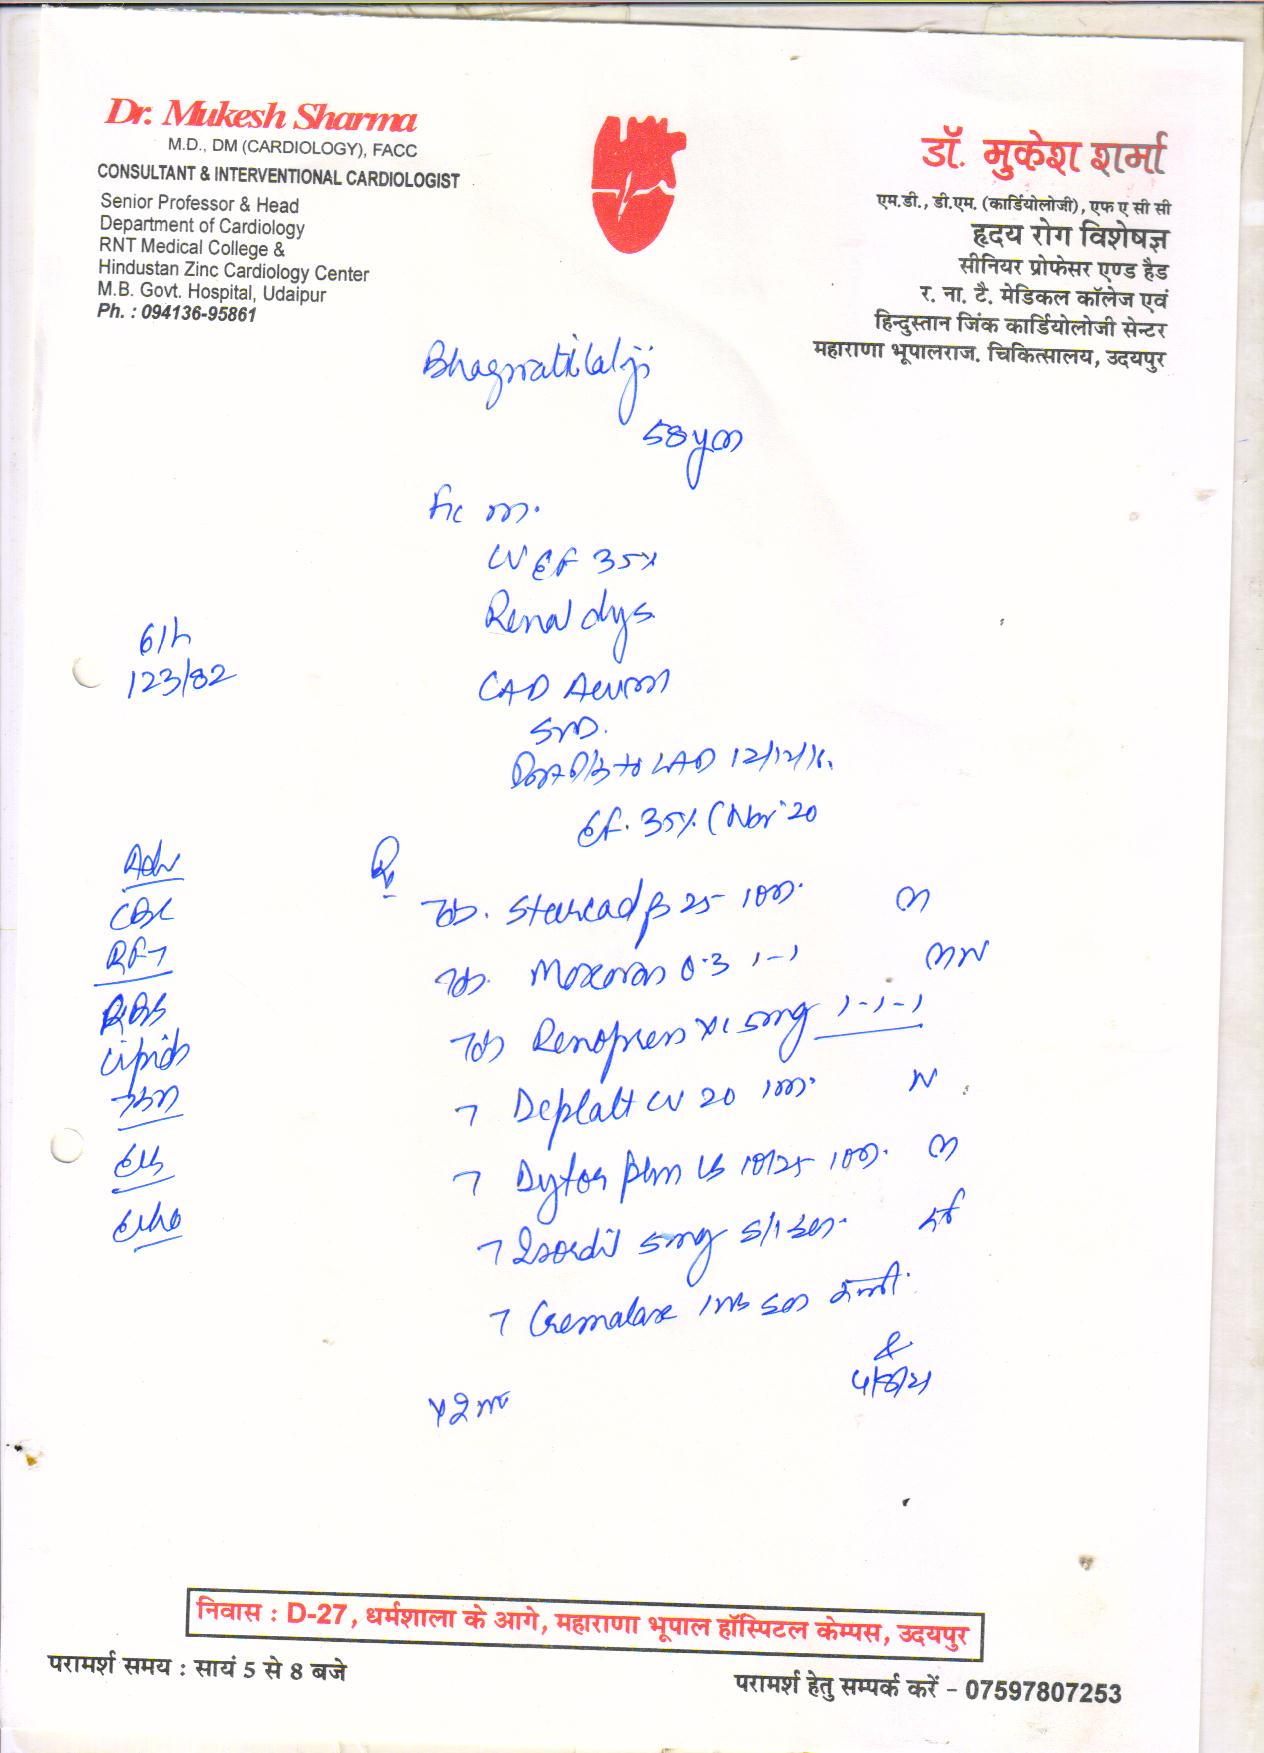 Dr. Mukesh Sharma
M.D., DM (CARDIOLOGY), FACC
CONSULTANT & INTERVENTIONAL CARDIOLOGIST
Senior Professor & Head
Department of Cardiology
RNT Medical College &
Hindustan Zinc Cardiology Center
M.B. Govt. Hospital, Udaipur
Ph. : 094136-95861
डॉ. मुकेश शर्मा
एम.डी., डी.एम. (कार्डियोलोजी), एफ ए सी सी
हृदय रोग विशेषज्ञ
सीनियर प्रोफेसर एण्ड हैड
र. ना. टै. मेडिकल कॉलेज एवं
हिन्दुस्तान जिंक कार्डियोलोजी सेन्टर
महाराणा भूपालराज. चिकित्सालय, उदयपुर
Bhagwatilalji
58
LVEF 35%
Renal dys.
123/82
CAD
SVD.
to LAD 12/12/16.
EF. 35% (Nov'20
Adv
CBC
RFT
RBS
Lipids
Echo
Rx
Starcad β 25
Moxovas 0.3 1-1
Renopress XL 5mg 1-1-1
T Deplatt CV 20
T Dytor Plus LS 10/25
T Isordil 5mg S/L
T Cremalax
4/8/21
x 2
निवास : D-27, धर्मशाला के आगे, महाराणा भूपाल हॉस्पिटल केम्पस, उदयपुर
परामर्श समय : सायं 5 से 8 बजे
परामर्श हेतु सम्पर्क करें - 07597807253